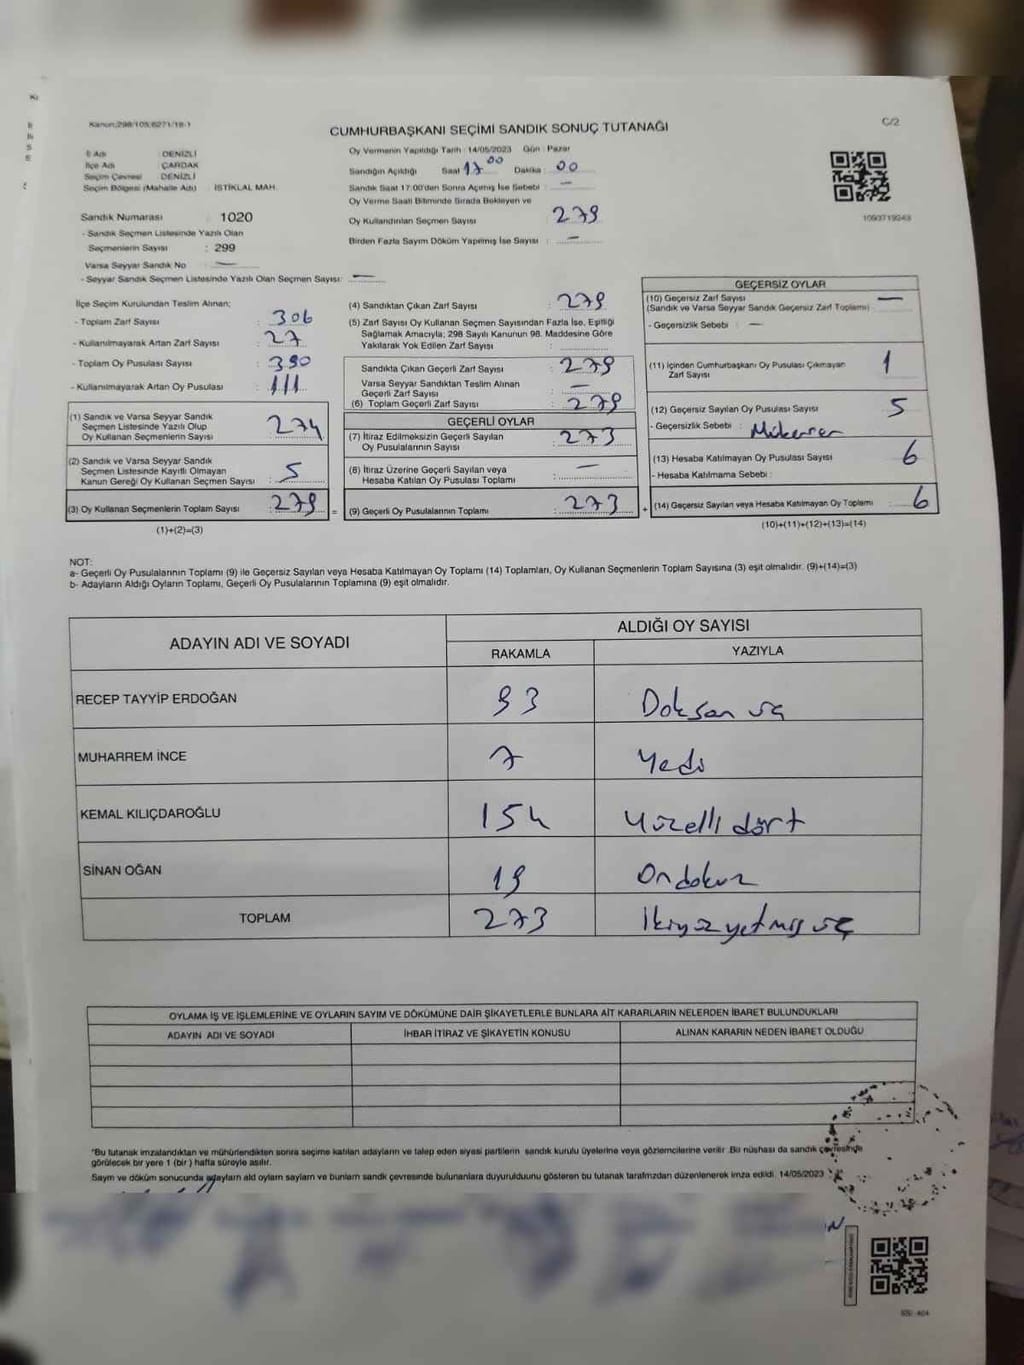 Kanun:298/105,6271/18-1
CUMHURBAŞKANI SEÇİMİ SANDIK SONUÇ TUTANAĞI
C/2
İl Adı : DENİZLİ
İlçe Adı : ÇARDAK
Seçim Çevresi : DENİZLİ
Seçim Bölgesi (Mahalle Adı) : İSTİKLAL MAH.
Sandık Numarası : 1020
- Sandık Seçmen Listesinde Yazılı Olan
Seçmenlerin Sayısı : 299
Varsa Seyyar Sandık No : —
- Seyyar Sandık Seçmen Listesinde Yazılı Olan Seçmen Sayısı: —
Oy Vermenin Yapıldığı Tarih : 14/05/2023 Gün : Pazar
Sandığın Açıldığı Saat : 17 00 Dakika : 00
Sandık Saat 17:00'den Sonra Açılmış İse Sebebi : —
Oy Verme Saati Bitiminde Sırada Bekleyen ve
Oy Kullandırılan Seçmen Sayısı : 279
Birden Fazla Sayım Döküm Yapılmış İse Sayısı : —
1093719243
İlçe Seçim Kurulundan Teslim Alınan;
- Toplam Zarf Sayısı : 306
- Kullanılmayarak Artan Zarf Sayısı : 27
- Toplam Oy Pusulası Sayısı : 390
- Kullanılmayarak Artan Oy Pusulası : 111
(1) Sandık ve Varsa Seyyar Sandık
Seçmen Listesinde Yazılı Olup
Oy Kullanan Seçmenlerin Sayısı : 274
(2) Sandık ve Varsa Seyyar Sandık
Seçmen Listesinde Kayıtlı Olmayan
Kanun Gereği Oy Kullanan Seçmen Sayısı : 5
(3) Oy Kullanan Seçmenlerin Toplam Sayısı : 279 =
(1)+(2)=(3)
(4) Sandıktan Çıkan Zarf Sayısı : 279
(5) Zarf Sayısı Oy Kullanan Seçmen Sayısından Fazla İse, Eşitliği
Sağlamak Amacıyla; 298 Sayılı Kanunun 98. Maddesine Göre
Yakılarak Yok Edilen Zarf Sayısı :
Sandıkta Çıkan Geçerli Zarf Sayısı : 279
Varsa Seyyar Sandıktan Teslim Alınan
Geçerli Zarf Sayısı : —
(6) Toplam Geçerli Zarf Sayısı : 279
GEÇERLİ OYLAR
(7) İtiraz Edilmeksizin Geçerli Sayılan
Oy Pusulalarının Sayısı : 273
(8) İtiraz Üzerine Geçerli Sayılan veya
Hesaba Katılan Oy Pusulası Toplamı : —
(9) Geçerli Oy Pusulalarının Toplamı : 273 +
GEÇERSİZ OYLAR
(10) Geçersiz Zarf Sayısı —
(Sandık ve Varsa Seyyar Sandık Geçersiz Zarf Toplamı) :
- Geçersizlik Sebebi : —
(11) İçinden Cumhurbaşkanı Oy Pusulası Çıkmayan
Zarf Sayısı 1
(12) Geçersiz Sayılan Oy Pusulası Sayısı 5
- Geçersizlik Sebebi : Mükerrer
(13) Hesaba Katılmayan Oy Pusulası Sayısı 6
- Hesaba Katılmama Sebebi :
(14) Geçersiz Sayılan veya Hesaba Katılmayan Oy Toplamı 6
(10)+(11)+(12)+(13)=(14)
NOT:
a- Geçerli Oy Pusulalarının Toplamı (9) ile Geçersiz Sayılan veya Hesaba Katılmayan Oy Toplamı (14) Toplamları, Oy Kullanan Seçmenlerin Toplam Sayısına (3) eşit olmalıdır. (9)+(14)=(3)
b- Adayların Aldığı Oyların Toplamı, Geçerli Oy Pusulalarının Toplamına (9) eşit olmalıdır.
ADAYIN ADI VE SOYADI
ALDIĞI OY SAYISI
RAKAMLA YAZIYLA
RECEP TAYYİP ERDOĞAN 93 Doksan üç
MUHARREM İNCE 7 Yedi
KEMAL KILIÇDAROĞLU 154 Yüzelli dört
SİNAN OĞAN 19 Ondokuz
TOPLAM 273 İkiyüzyetmiş üç
OYLAMA İŞ VE İŞLEMLERİNE VE OYLARIN SAYIM VE DÖKÜMÜNE DAİR ŞİKAYETLERLE BUNLARA AİT KARARLARIN NELERDEN İBARET BULUNDUKLARI
ADAYIN ADI VE SOYADI İHBAR İTİRAZ VE ŞİKAYETİN KONUSU ALINAN KARARIN NEDEN İBARET OLDUĞU
"Bu tutanak imzalandıktan ve mühürlendikten sonra seçime katılan adayların ve talep eden siyasi partilerin sandık kurulu üyelerine veya gözlemcilerine verilir. Bir nüshası da sandık çevresinde
görülecek bir yere 1 (bir) hafta süreyle asılır.
Sayım ve döküm sonucunda adayların ald oyların sayların ve bunların sandık çevresinde bulunanlara duyurulduunu gösteren bu tutanak tarafmzdan düzenlenerek imza edildi. 14/05/2023